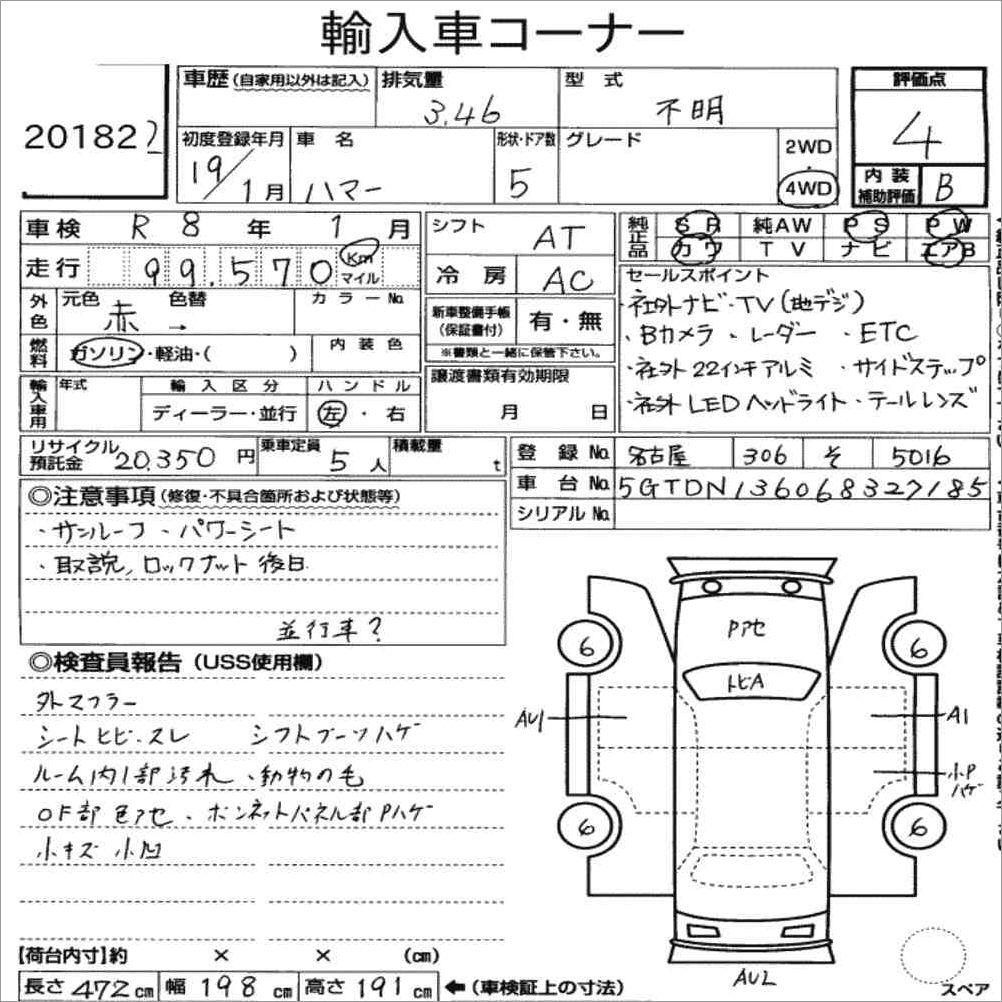 輸入車コーナー
20182
車歴(自家用以外は記入) 排気量 3.46 型式 不明 評価点 4
初度登録年月 19/1月 車名 ハマー 形状・ドア数 5 グレード 2WD・4WD 内装補助評価 B
車検 R8年1月 シフト AT 純正品 SR 純AW PS PW
走行 99,570 Km マイル 冷房 AC カワ TV ナビ エアB
外色 元色 赤 → 色替 カラーNo. 新車整備手帳(保証書付) 有・無 セールスポイント
※書類と一緒に保管下さい。
燃料 ガソリン・軽油・( ) 内装色 譲渡書類有効期限 月 日
・社外ナビ・TV(地デジ)
・Bカメラ ・レーダー ・ETC
・社外22インチアルミ ・サイドステップ
・社外LEDヘッドライト・テールレンズ
輸入車用 年式 輸入区分 ディーラー・並行 ハンドル 左・右
リサイクル預託金 20,350円 乗車定員 5人 積載量 t 登録No. 名古屋 306 そ 5016
車台No. 5GTDN136068327185
シリアルNo.
◎注意事項(修復・不具合箇所および状態等)
・サンルーフ ・パワーシート
・取説,ロックナット後日
並行車?
◎検査員報告(USS使用欄)
外マフラー
シートヒビ・スレ シフトブーツハゲ
ルーム内1部汚れ、動物の毛
OF部色アセ、ボンネットパネル部Pハゲ
小キズ 小凹
Pアセ
トビA
6 6
AU1 A1
小Pハゲ
6 6
AU2
スペア
【荷台内寸】約 × × (cm)
長さ472cm 幅198cm 高さ191cm ←(車検証上の寸法)